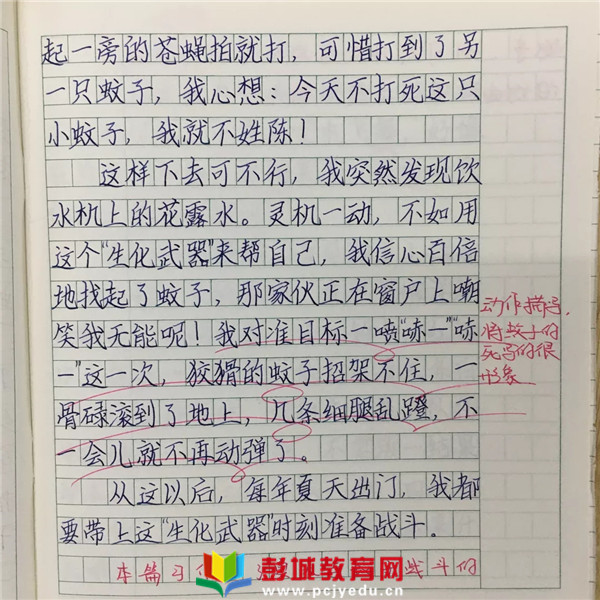 起一旁的苍蝇拍就打，可惜打到了另
一只蚊子，我心想：今天不打死这只
小蚊子，我就不姓陈！
这样下去可不行，我突然发现饮
水机上的花露水。灵机一动，不如用
这个“生化武器”来帮自己，我信心百倍
地找起了蚊子，那家伙正在窗户上嘲
笑我无能呢！我对准目标一喷“哧一”“哧
一”这一次，狡猾的蚊子招架不住，一
骨碌滚到了地上，几条细腿乱蹬，不
一会儿就不再动弹了。
从这以后，每年夏天出门，我都
要带上这“生化武器”时刻准备战斗。
动作描写，
将蚊子的
死写的很
形象
本篇习
战斗的
彭城教育网
www.pcjyedu.cn